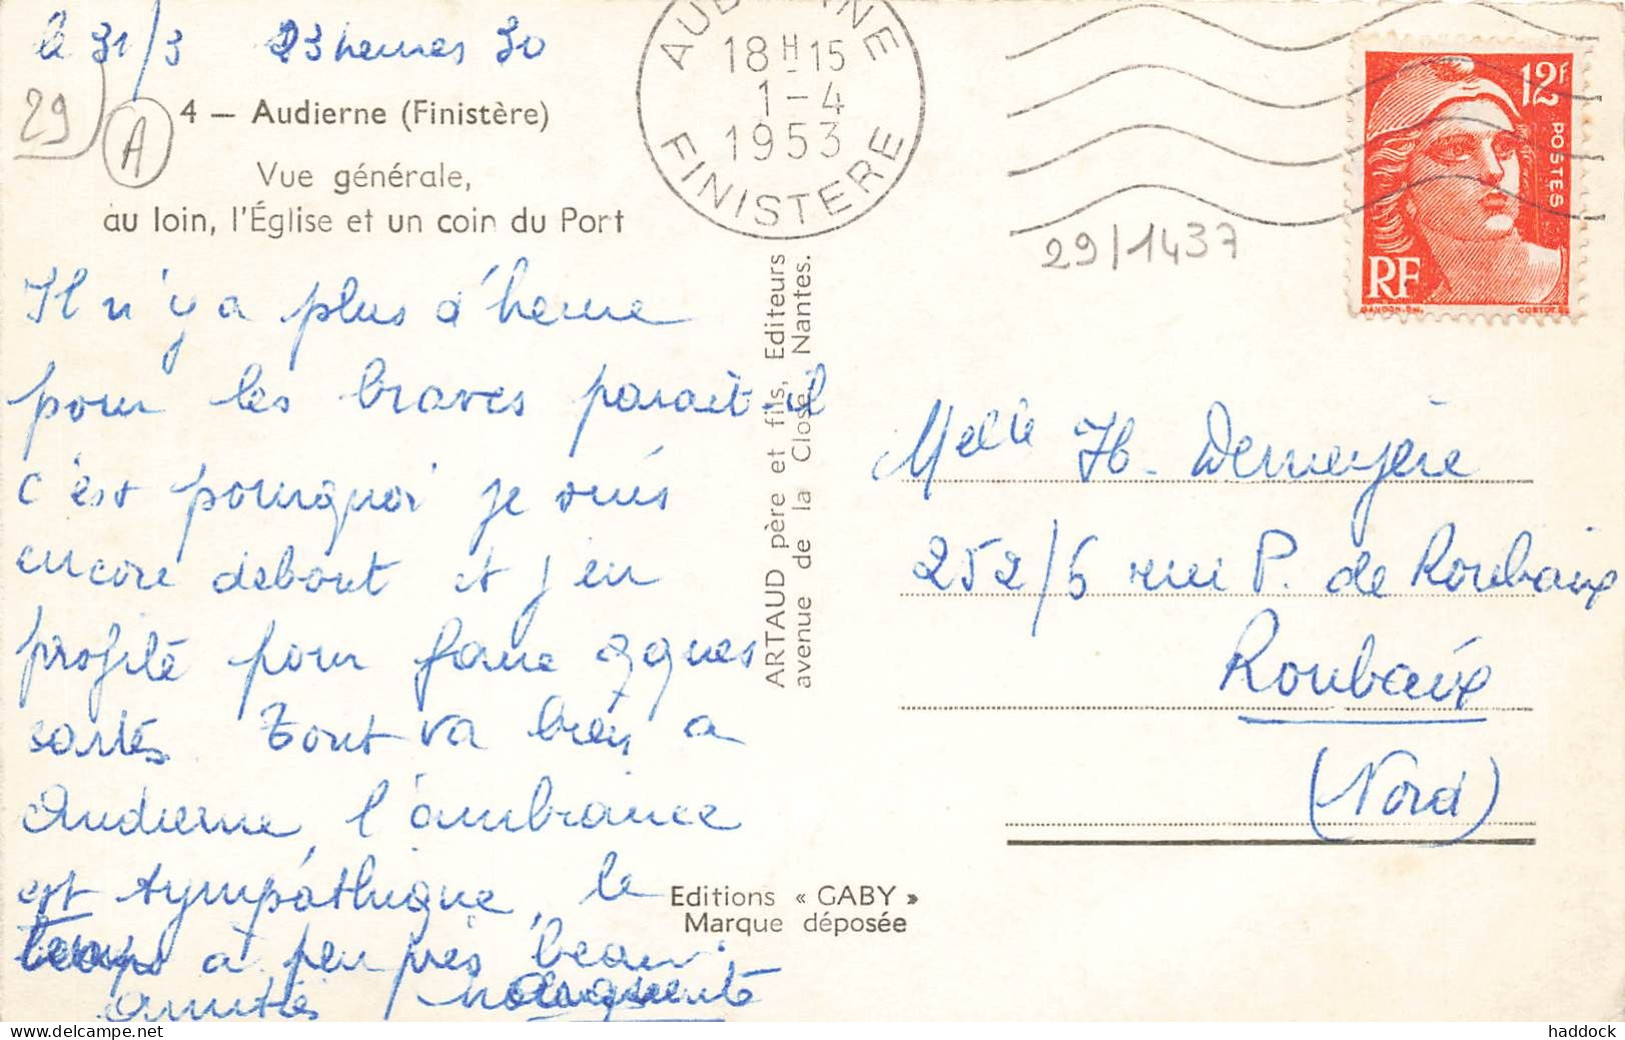 le 31/3 23 heures 30
29
A
4 — Audierne (Finistère)
Vue générale,
au loin, l'Église et un coin du Port
Il n'y a plus d'heure
pour les braves parait-il
c'est pourquoi je suis
encore debout et j'en
profite pour faire qques
cartes Tout va bien a
Audierne, l'ambiance
est sympathique, le
temps a peu près beau.
amitiés
ARTAUD père et fils, Editeurs
avenue de la Close, Nantes.
Editions « GABY »
Marque déposée
AUDIERNE
18H15
1-4
1953
FINISTERE
12F
POSTES
RF
29/1437
Melle H. Demeyère
252/6 rue P. de Roubaix
Roubaix
(Nord)
https://www.delcampe.net
haddock